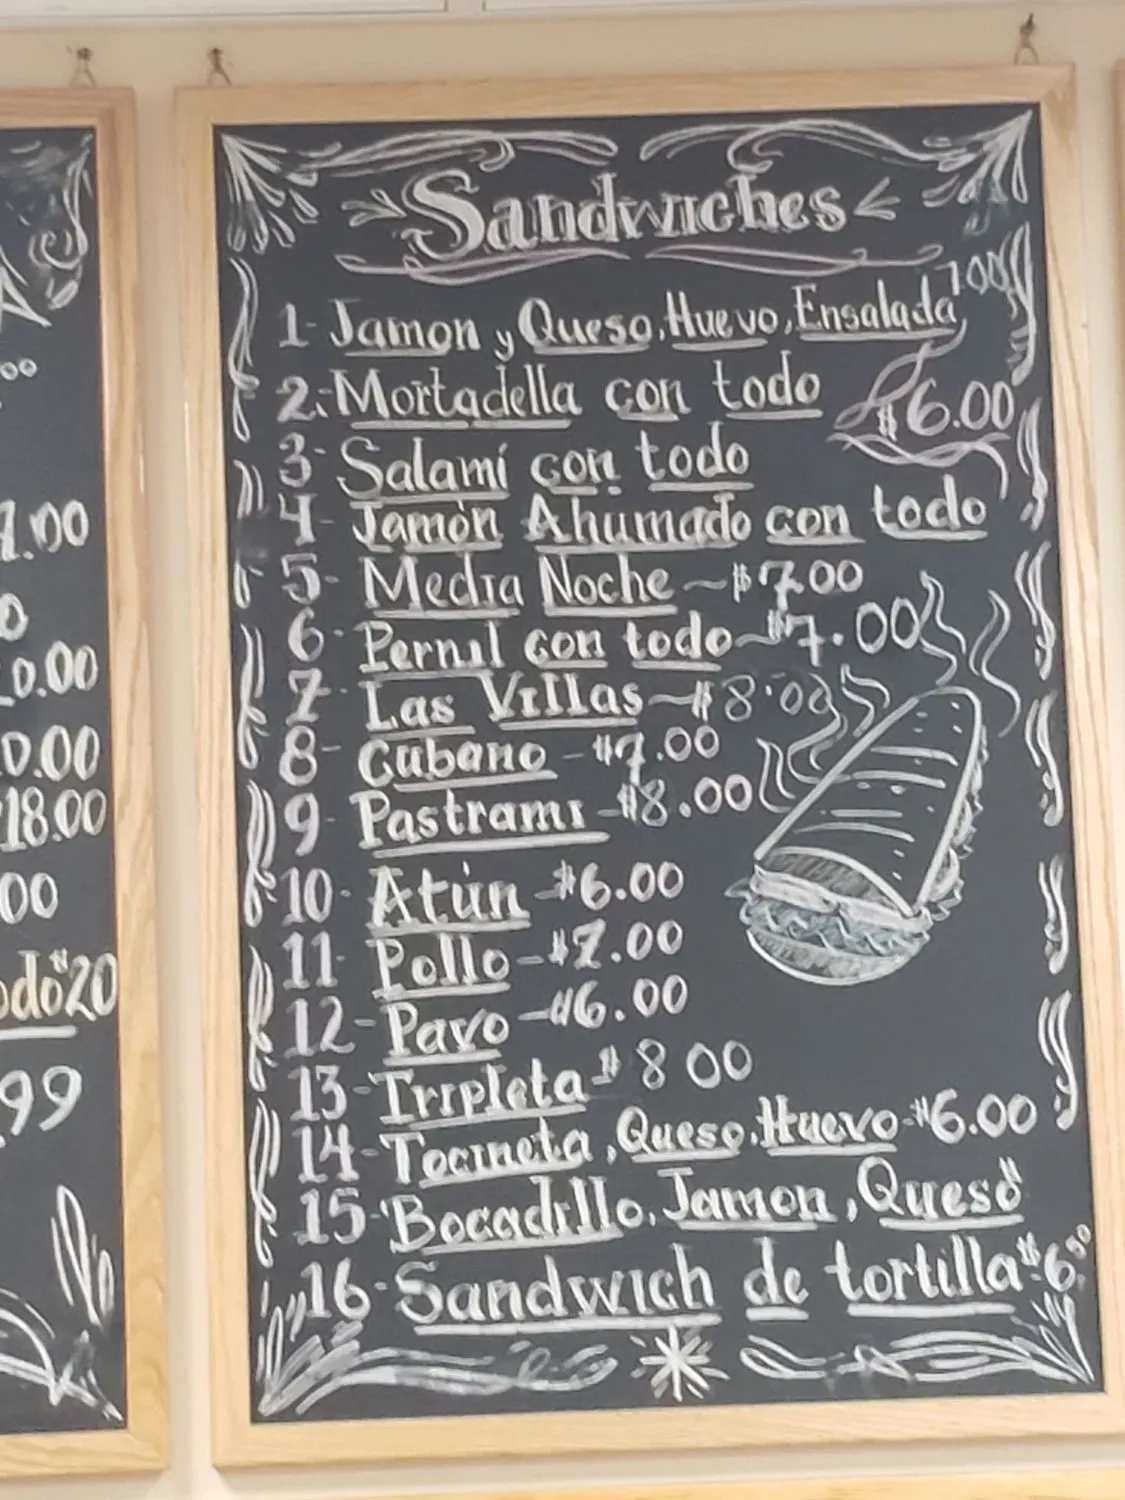 Sandwiches
1- Jamon y Queso, Huevo, Ensalada, 7.00
2.- Mortadella con todo
$6.00
3- Salamí con todo
4- Jamón Ahumado con todo
5- Media Noche - $7.00
6- Pernil con todo - $7.00
7- Las Villas - $8.00
8- Cubano - $7.00
9- Pastrami - $8.00
10- Atún - $6.00
11- Pollo - $7.00
12- Pavo - $6.00
13- Tripleta - $8 00
14- Tocineta, Queso, Huevo - $6.00
15- Bocadillo, Jamon, Queso
16- Sandwich de tortilla $6.50
00
0.00
18.00
00
$20
99